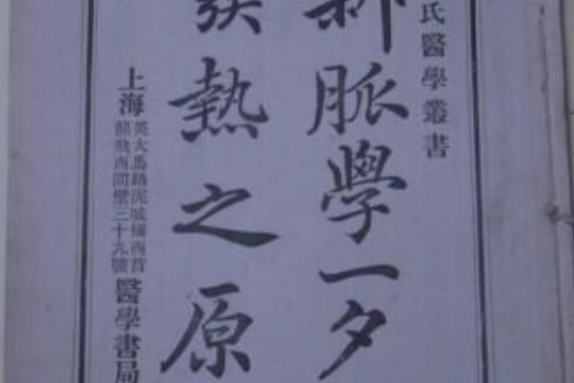 氏醫學叢書
新脈學一夕
發熱之原
上海
英大馬路泥城橋西首
龍飛西間壁三十九號
醫學書局